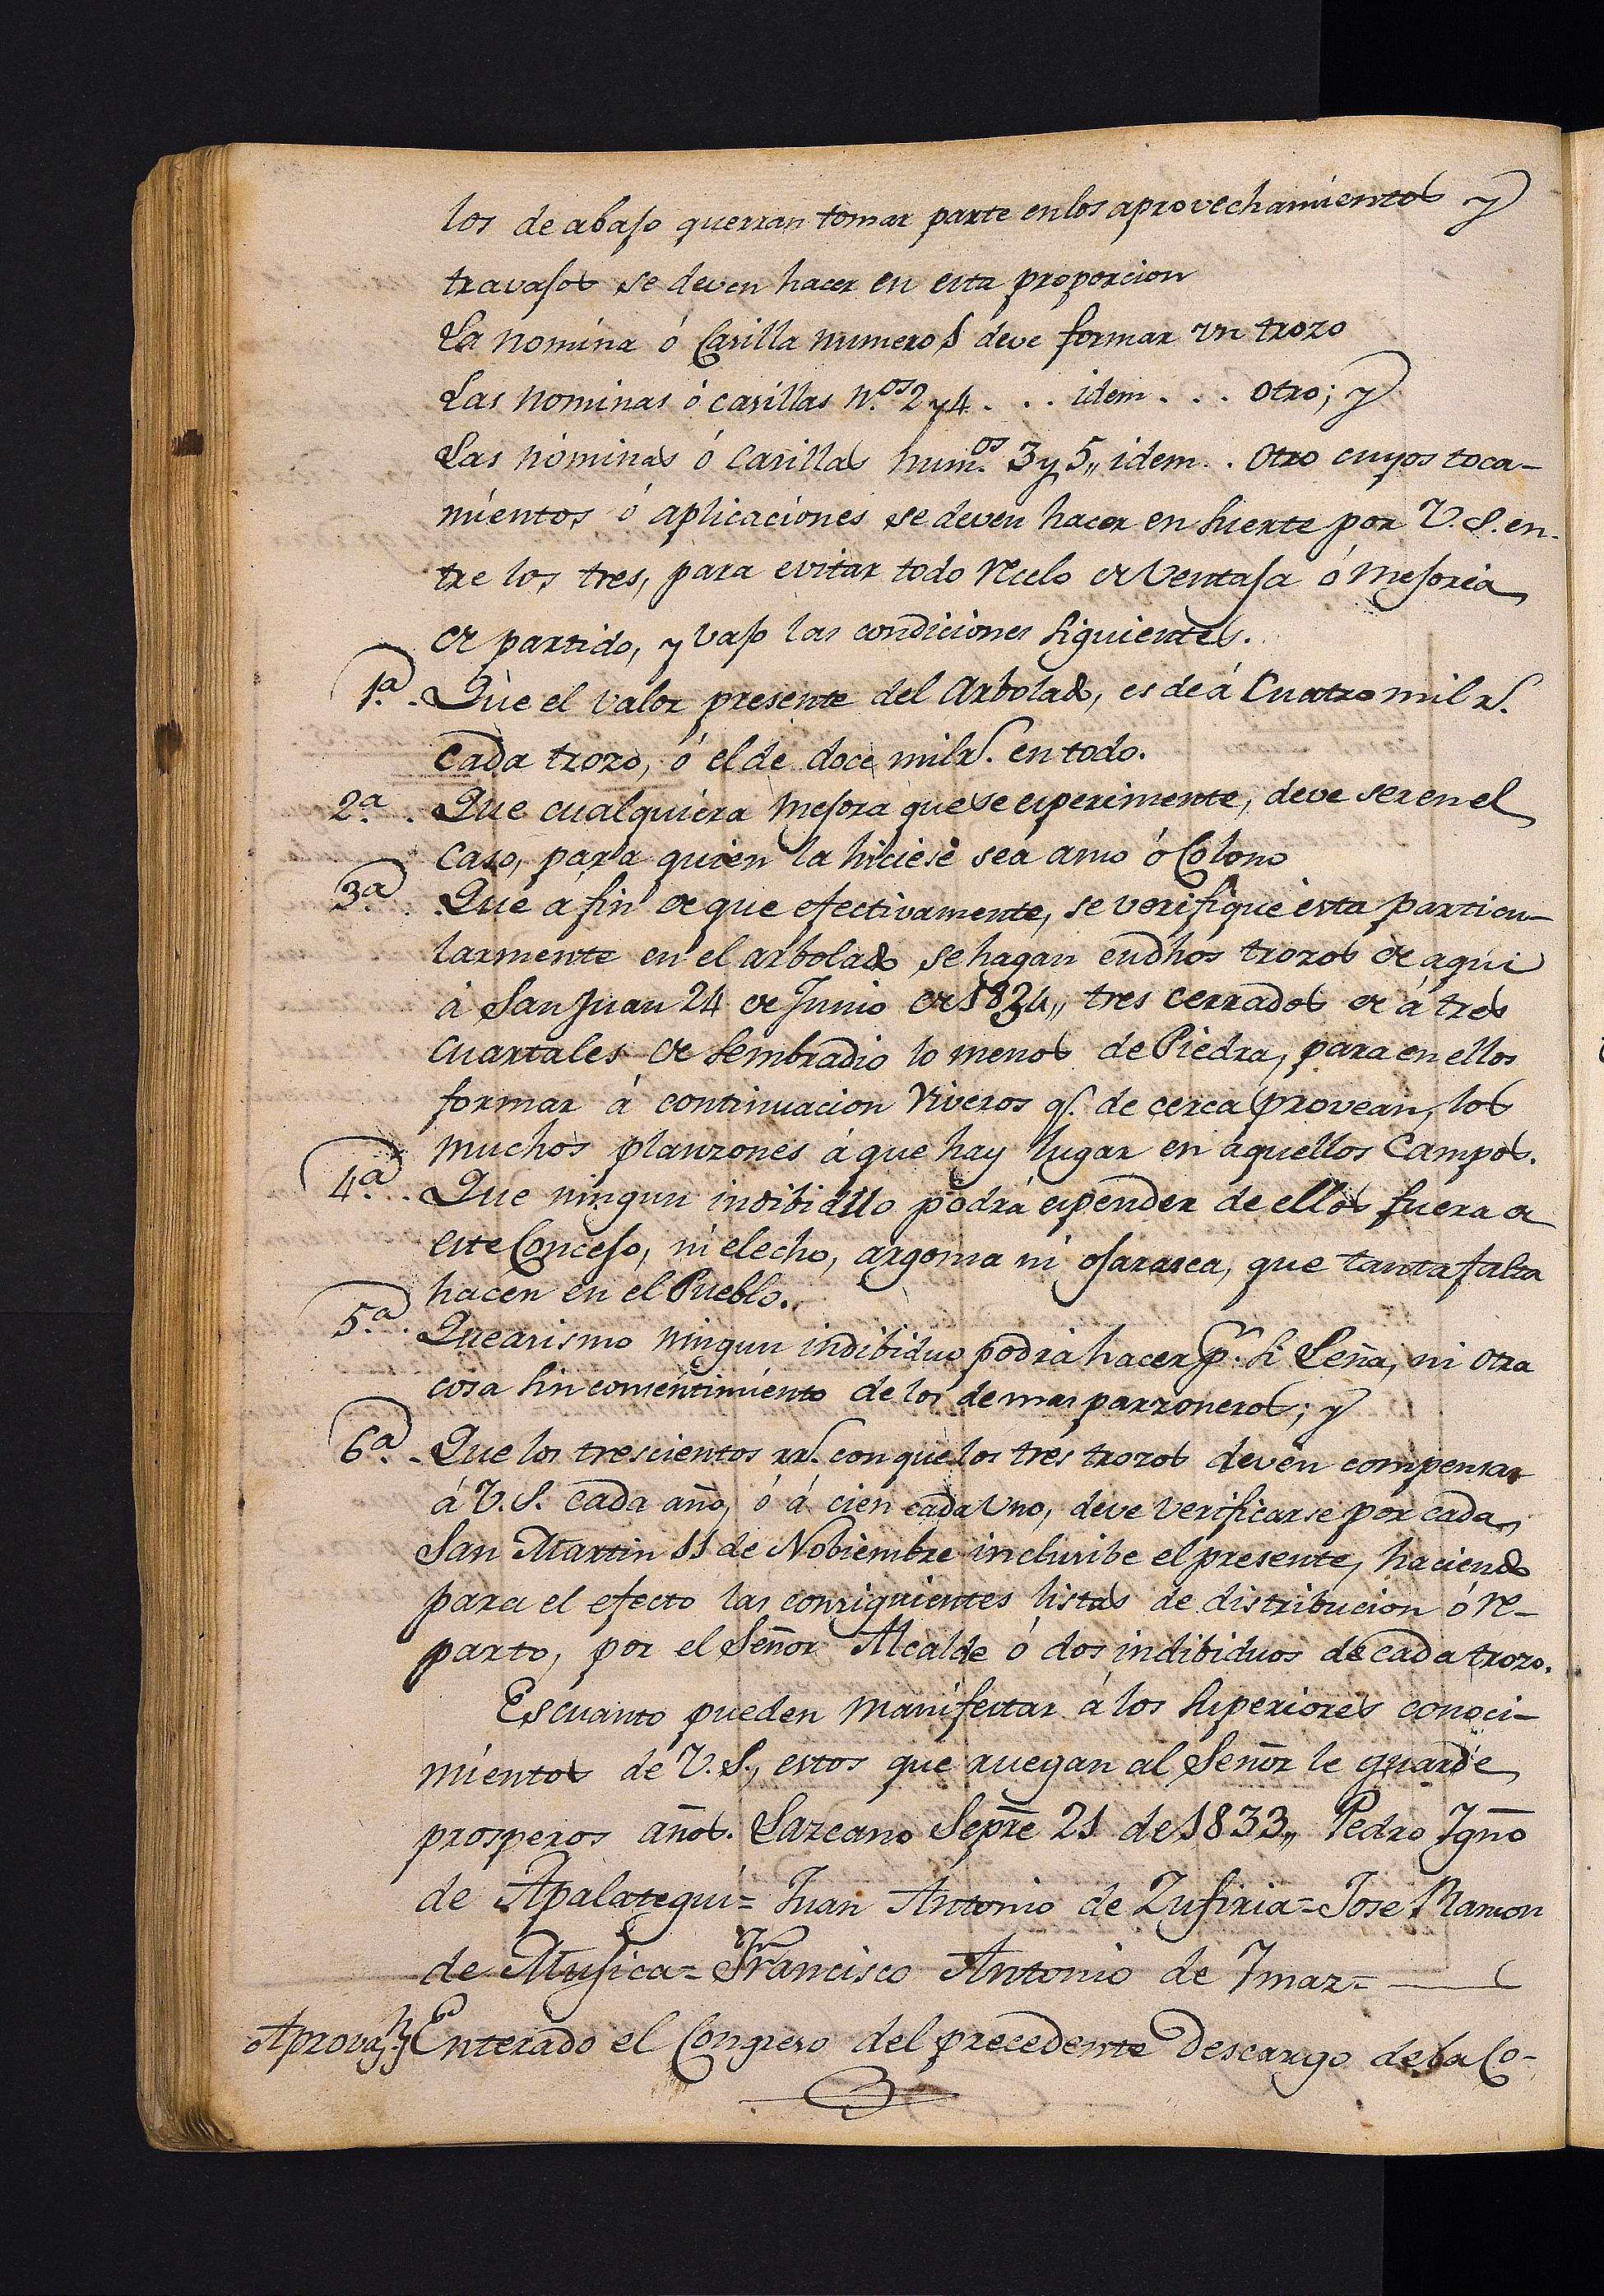 los de abajo querran tomar parte en los aprovechamientos y
travajos se deven hacer en esta proporcion
La nomina ó Casilla numero 1 deve formar un trozo
Las nominas ó casillas n.os 2 y 4 . . . idem . . . otro; y
Las nóminas ó casillas num.os 3 y 5,, idem . . Otro cuyos toca-
mientos ó aplicaciones se deven hacer en suerte por V.S. en-
tre los tres, para evitar todo recelo de Ventaja ó Mejoria
de partido, y vajo las condiciones siguientes.
1.a . Que el valor presente del Arbolado, es de á Cuatro mil rs.
cada trozo, ó el de doce mil rs. en todo.
2.a . Que cualquiera Mejora que se esperimente, deve ser en el
caso, para quien la hiciese sea amo ó Colono
3.a . Que a fin de que efectivamente, se verifique esta particu-
larmente en el arbolado se hagan en dhos trozos de aqui
á San Juan 24 de Junio de 1834,, tres cerrados de á tres
cuartales de sembradio lo menos de Piedra, para en ellos
formar á continuacion Viveros qe. de cerca provean, los
muchos planzones á que hay lugar en aquellos Campos.
4.a . Que ningun indibiduo podrá espender de ellos fuera de
este Concejo, ni elecho, argoma ni ojarasca, que tanta falta
hacen en el Pueblo.
5.a . Que asismo ningun indibiduo podrá hacer pr. si Leña, ni otra
cosa sin consentimiento de los demas parzoneros; y
6.a . Que los trescientos rrs. con que los tres trozos deven compensar
á V.S. cada año, ó á cien cada Uno, deve verificarse por cada
San Martin 11 de Nobiembre inclusibe el presente, haciendo
para el efecto las consiguientes listas de distribucion ó re-
parto, por el Señor Alcalde ó dos indibiduos de cada trozo.
Es cuanto pueden manifestar á los superiores conoci-
mientos de V.S., estos que ruegan al Señor le guarde
prosperos años. Lazcano Sepre 21 de 1833,, Pedro Igno
de Apalategui = Juan Antonio de Zufiria = Jose Ramon
de Mujica = Francisco Antonio de Imaz =
Aprovan. Enterado el Congreso del precedente Descargo de la Co-